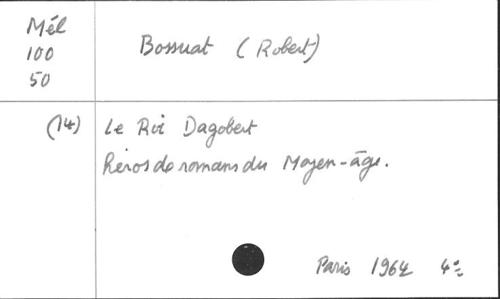 Mél
100
50
Bossuat (Robert)
(14) Le Roi Dagobert
héros de romans du Moyen-âge.
Paris 1964 4º